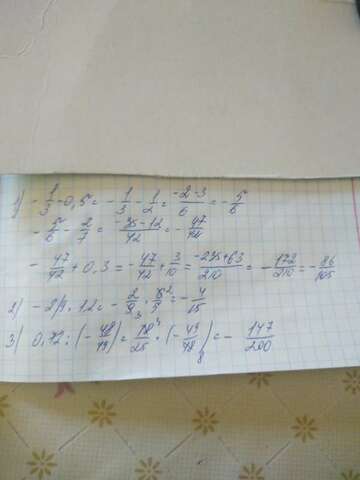 1) - 1/3 - 0,5 = - 1/3 - 1/2 = -2-3/6 = - 5/6
- 5/6 - 2/7 = -35-12/42 = - 47/42
- 47/42 + 0,3 = - 47/42 + 3/10 = -235+63/210 = - 172/210 = - 86/105
2) - 2/9 · 1,2 = - 2/9 3 · 6 2/5 = - 4/15
3) 0,72 : (- 48/49) = 18/25 · (- 49/48 8) = - 147/200